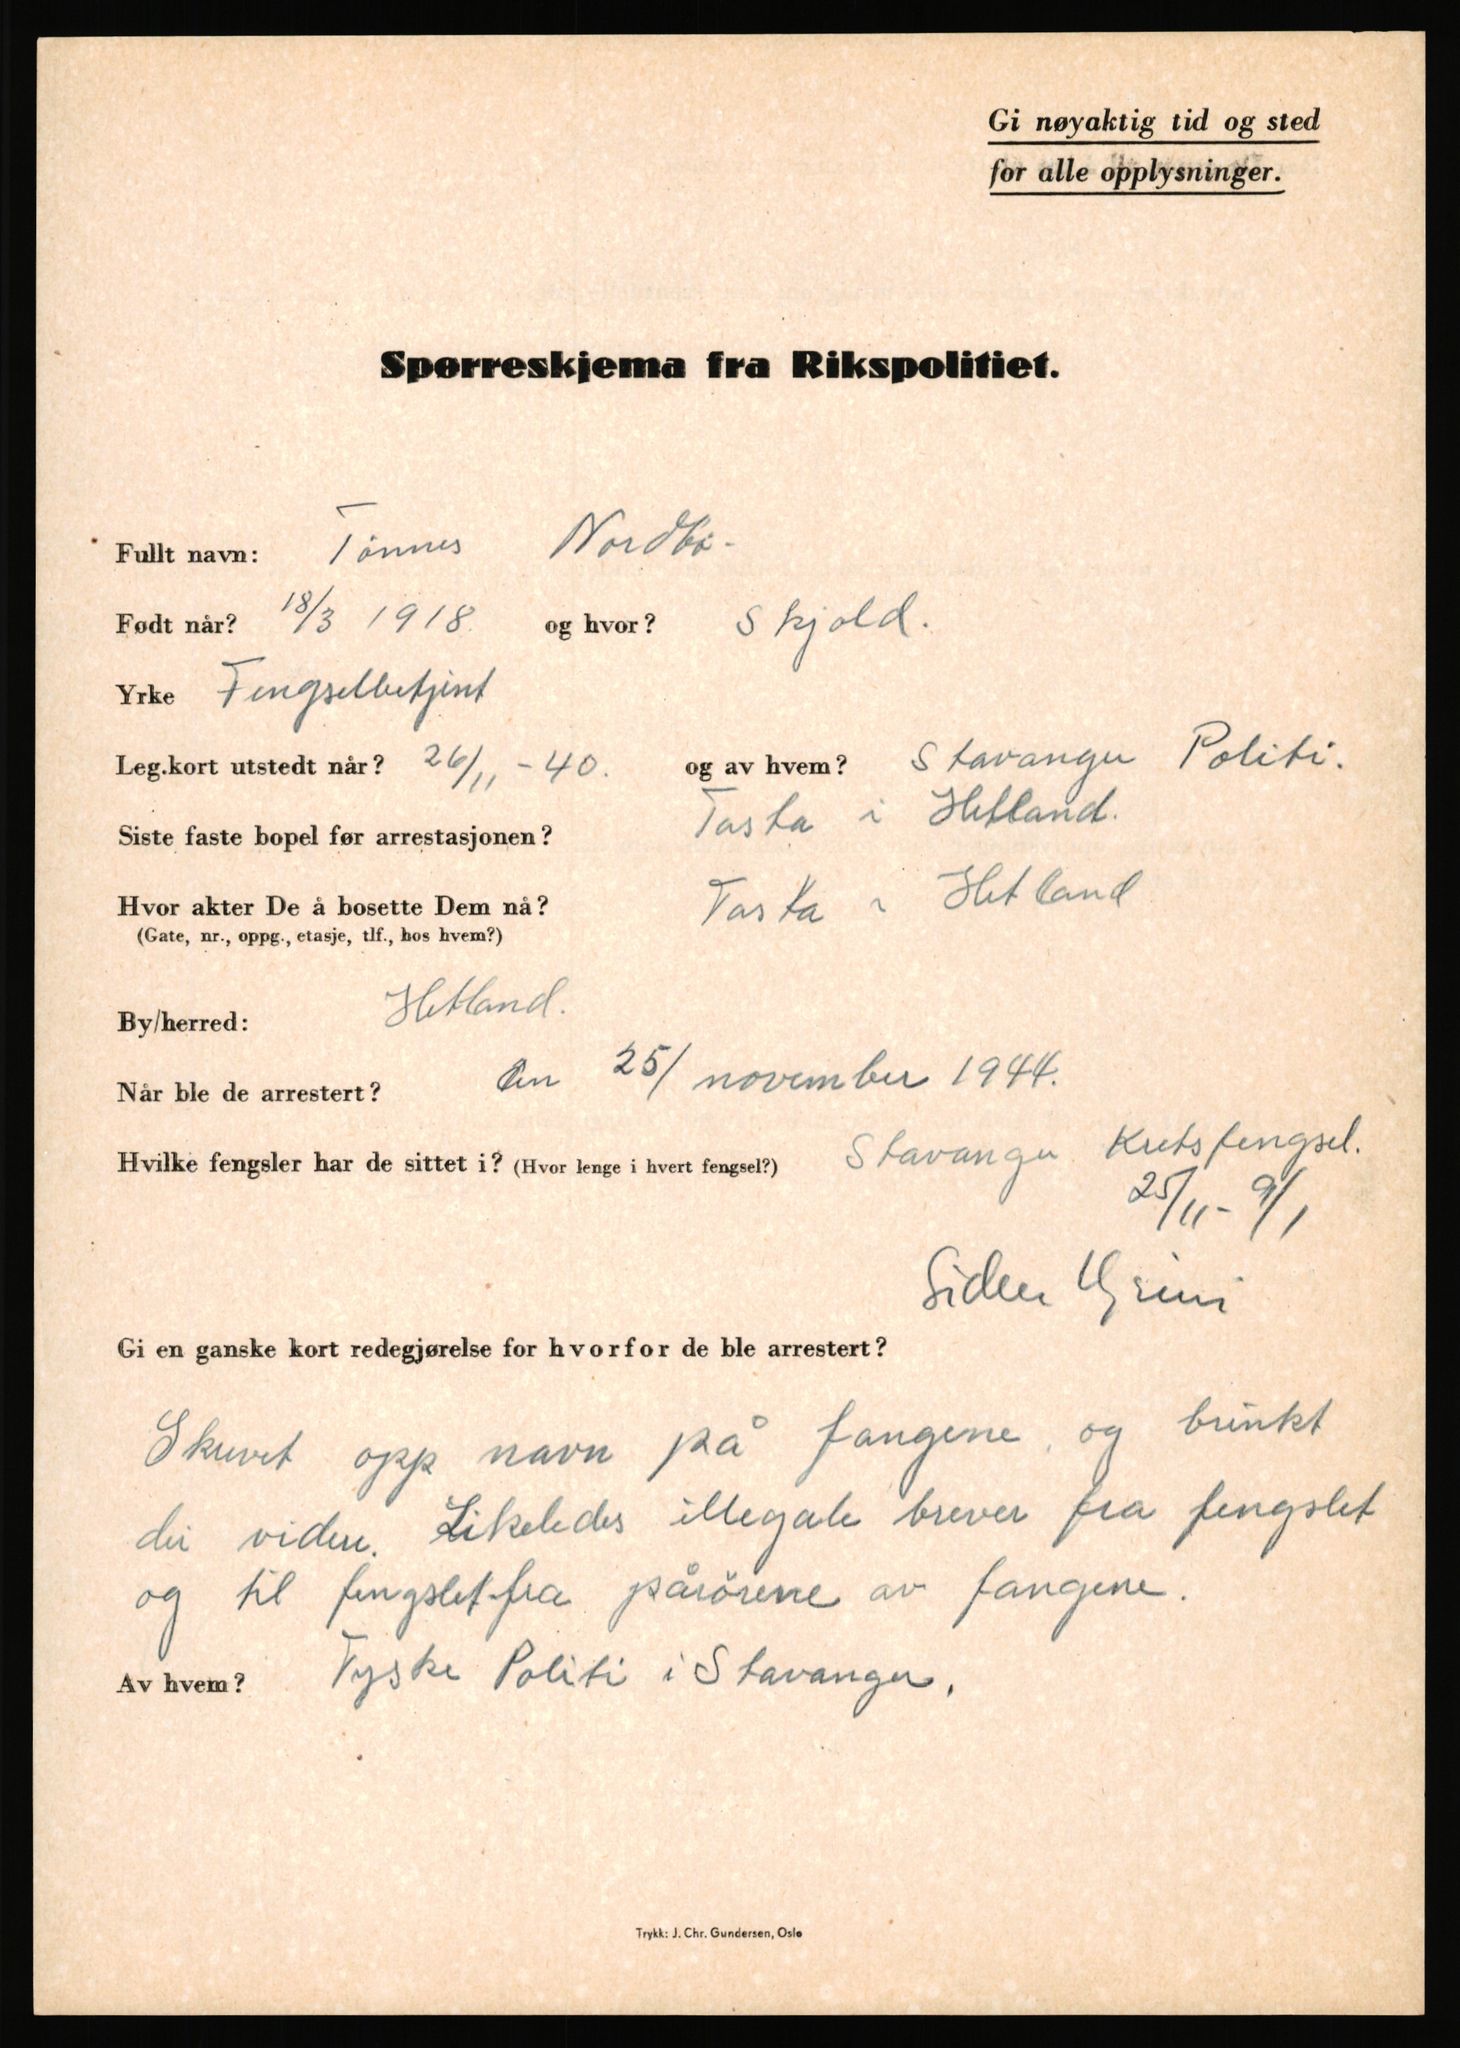 Gi nøyaktig tid og sted
for alle opplysninger.
Spørreskjema fra Rikspolitiet.
Fullt navn: Tønnes Nordbø.
Født når? 18/3 1918. og hvor? Skjold.
Yrke Fengselbetjent
Leg.kort utstedt når? 26/11-40. og av hvem? Stavanger Politi.
Siste faste bopel før arrestasjonen? Tasta i Hetland.
Hvor akter De å bosette Dem nå? Tasta i Hetland
(Gate, nr., oppg., etasje, tlf., hos hvem?)
By/herred: Hetland.
Når ble de arrestert? den 25/ november 1944.
Hvilke fengsler har de sittet i? (Hvor lenge i hvert fengsel?) Stavanger Kretsfengsel.
25/11-9/1
Siden Grini
Gi en ganske kort redegjørelse for hvorfor de ble arrestert?
Skrevet opp navn på fangene, og brinkt
dei videre. Likeledes illegale brever fra fengslet
og til fengslet fra pårörene av fangene.
Av hvem? Tyske Politi i Stavanger.
Trykk: J. Chr. Gundersen, Oslo